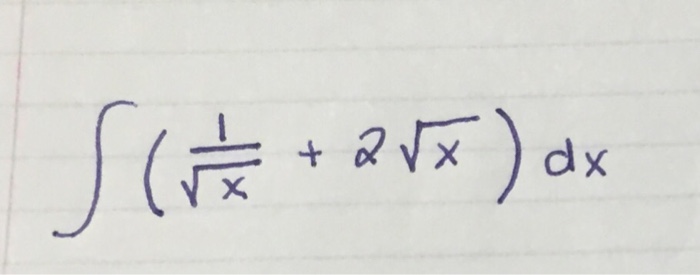 ∫(1/√x + 2√x) dx